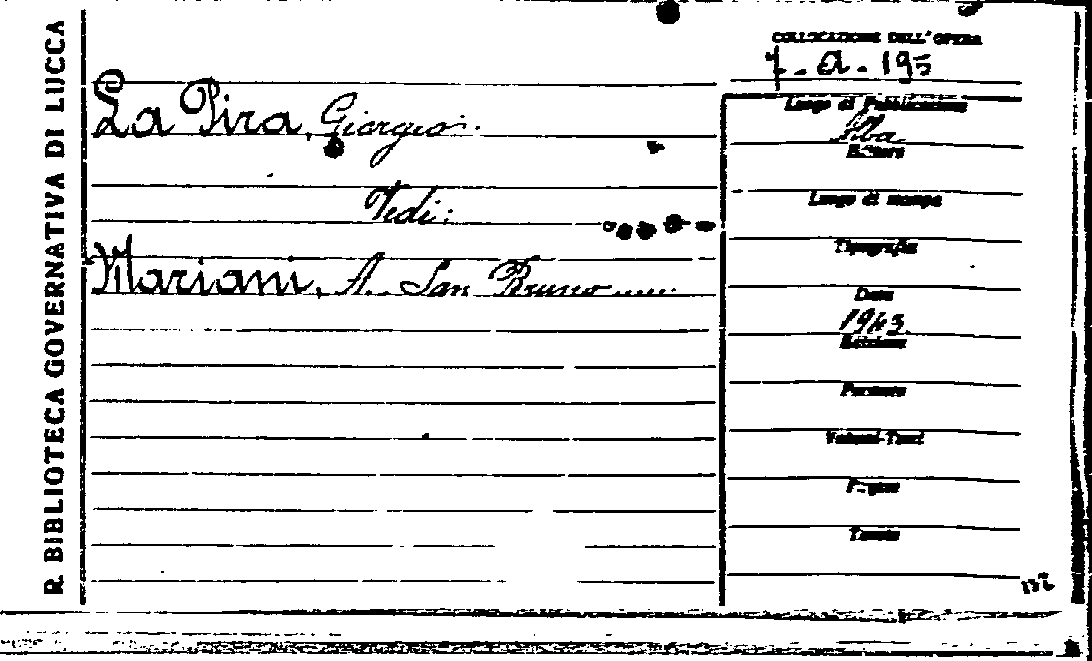 R. BIBLIOTECA GOVERNATIVA DI LUCCA
COLLOCAZIONE DELL'OPERA
7-a-195
La Pira, Giorgio.
Vedi:
Mariani, A. San Bruno .....
Luogo di Pubblicazione
Alba
Editore
Luogo di stampa
Tipografia
Data
1943
Edizione
Formato
Volumi-Tomi
Pagine
Tavole